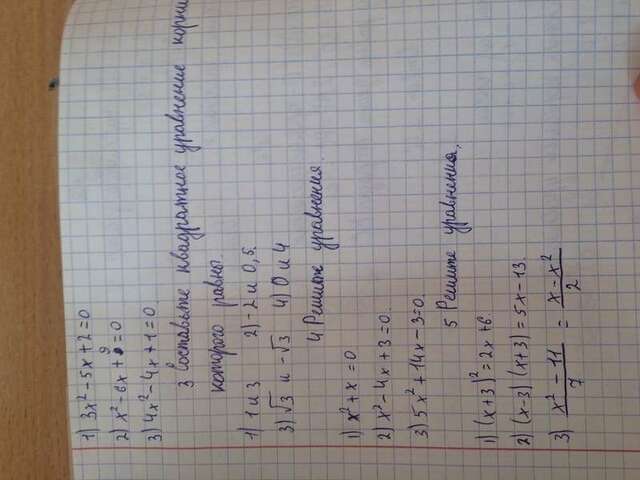 1) 3x² - 5x + 2 = 0
2) x² - 6x + 9 = 0
3) 4x² - 4x + 1 = 0
3 Составьте квадратное уравнение корни
которого равны.
1) 1 и 3 2) -2 и 0,5.
3) √3 и -√3 4) 0 и 4
4 Решите уравнения.
1) x² + x = 0
2) x² - 4x + 3 = 0.
3) 5x² + 14x - 3 = 0.
5 Решите уравнения.
1) (x+3)² = 2x + 6.
2) (x-3) (x+3) = 5x - 13.
3) (x² - 11)/7 = (x - x²)/2